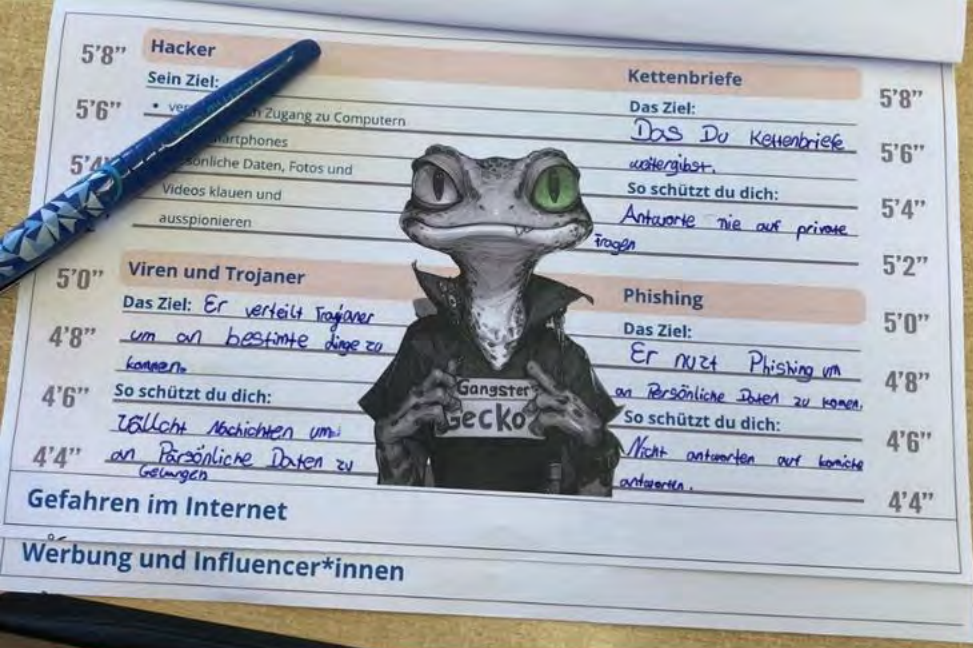 5'8”
5'6”
5'4
5'0”
4'8”
4'6”
4'4”
Hacker
Sein Ziel:
Zugang zu Computern
Daten, Fotos und
Videos klauen und
ausspionieren
Viren und Trojaner
Das Ziel: Er verteilt Trojaner
um an bestimte dinge zu
kommen.
So schützt du dich:
Nachichten um
an Pärsönliche Daten zu
Gelangen
Gangster
Gecko
Kettenbriefe
Das Ziel:
Das Du Kettenbriefe
weitergibst.
So schützt du dich:
Antworte nie auf private
fragen
Phishing
Das Ziel:
Er nuzt Phishing um
an Persönliche Daten zu komen.
So schützt du dich:
Nicht antworten auf komiche
antworten.
5'8”
5'6”
5'4”
5'2”
5'0”
4'8”
4'6”
4'4”
Gefahren im Internet
Werbung und Influencer*innen